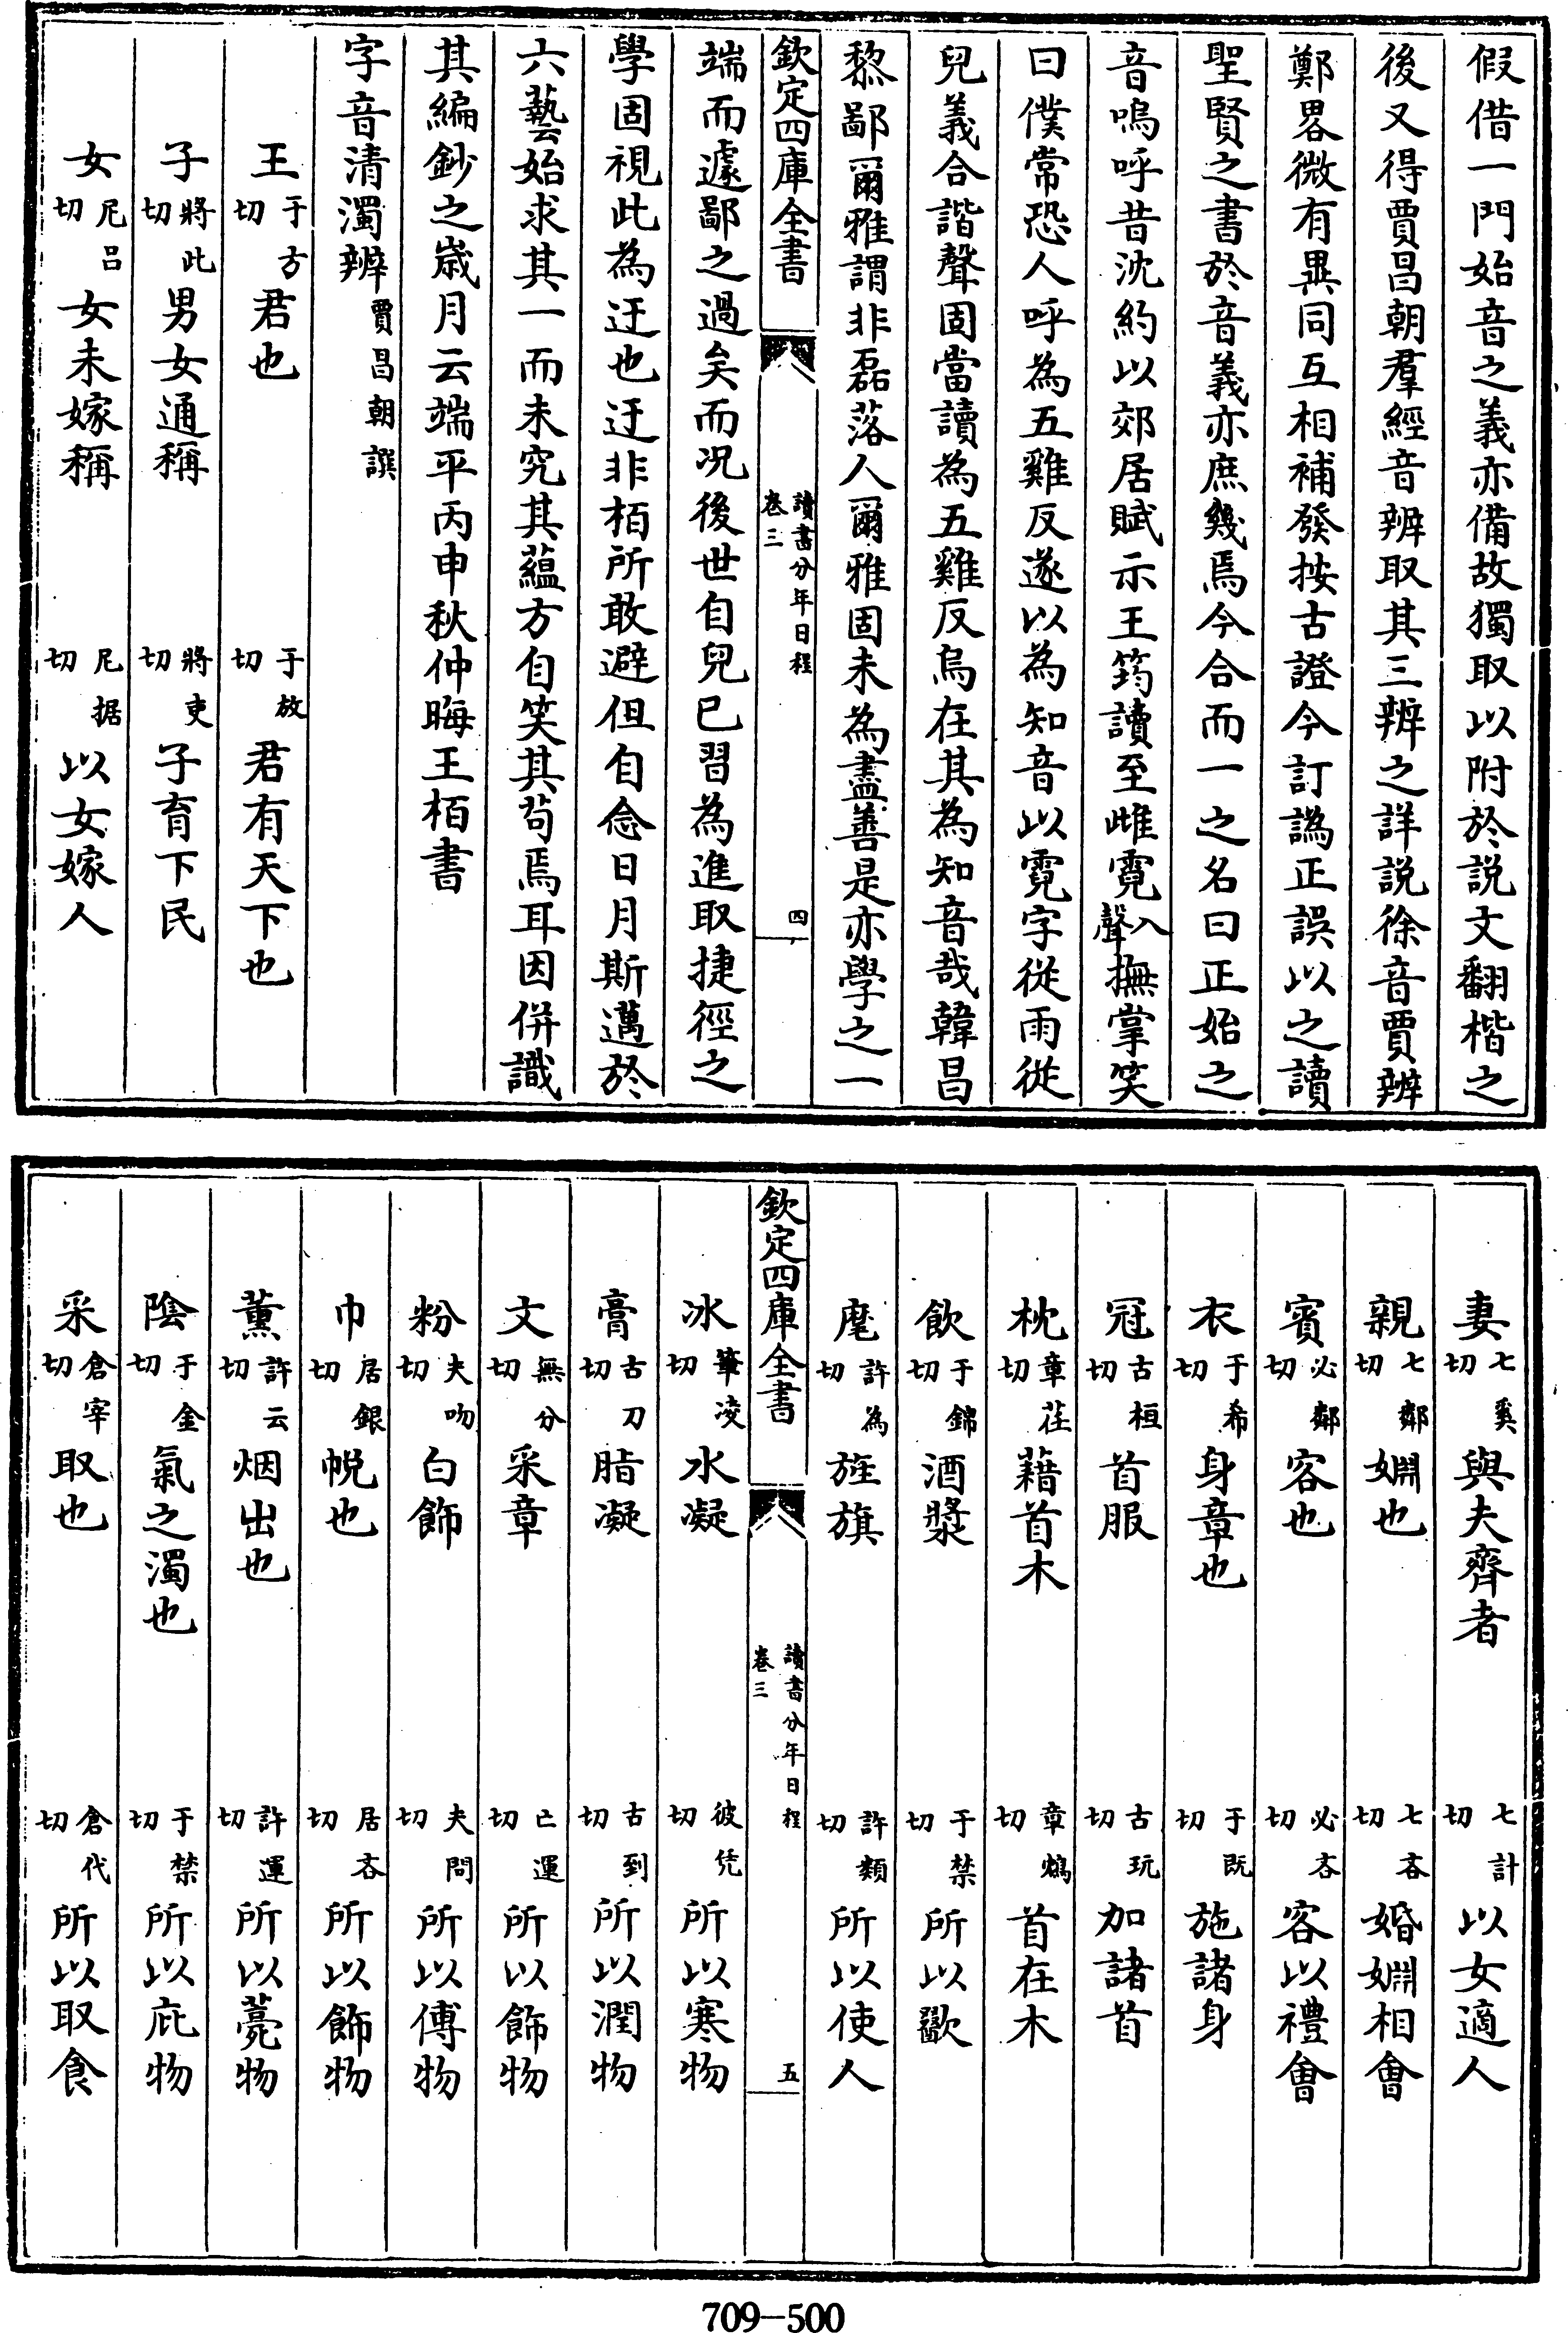 假借一門始音之義亦備故獨取以附於説文翻楷之
後又得賈昌朝羣經音辨取其三辨之詳説徐音賈辨
鄭畧微有異同互相補發按古證今訂譌正誤以之讀
聖賢之書於音義亦庶幾焉今合而一之名曰正始之
音嗚呼昔沈約以郊居賦示王筠讀至雌霓入聲撫掌笑
曰僕常恐人呼為五雞反遂以為知音以霓字從雨從
兒義合諧聲固當讀為五雞反烏在其為知音哉韓昌
黎鄙爾雅謂非磊落人爾雅固未為盡善是亦學之一
欽定四庫全書
讀書分年日程
卷三
四
端而遽鄙之過矣而况後世自兒已習為進取捷徑之
學固視此為迂也迂非栢所敢避但自念日月斯邁於
六藝始求其一而未究其蘊方自笑其苟焉耳因併識
其編鈔之歲月云端平丙申秋仲晦王栢書
字音清濁辨賈昌朝譔
王于方切君也 于放切君有天下也
子將此切男女通稱 將吏切子育下民
女尼呂切女未嫁稱 尼据切以女嫁人
妻七奚切與夫齊者 七計切以女適人
親七鄰切婣也 七吝切婚婣相會
賓必鄰切客也 必吝切客以禮會
衣于希切身章也 于既切施諸身
冠古桓切首服 古玩切加諸首
枕章荏切藉首木 章鴆切首在木
飲于錦切酒漿 于禁切所以歠
麾許為切旌旗 許類切所以使人
欽定四庫全書
讀書分年日程
卷三
五
冰筆凌切水凝 彼凭切所以寒物
膏古刀切脂凝 古到切所以潤物
文無分切采章 亡運切所以飾物
粉夫吻切白飾 夫問切所以傅物
巾居銀切帨也 居吝切所以飾物
薰許云切烟出也 許運切所以薨物
陰于金切氣之濁也 于禁切所以庇物
采倉宰切取也 倉代切所以取食
709-500